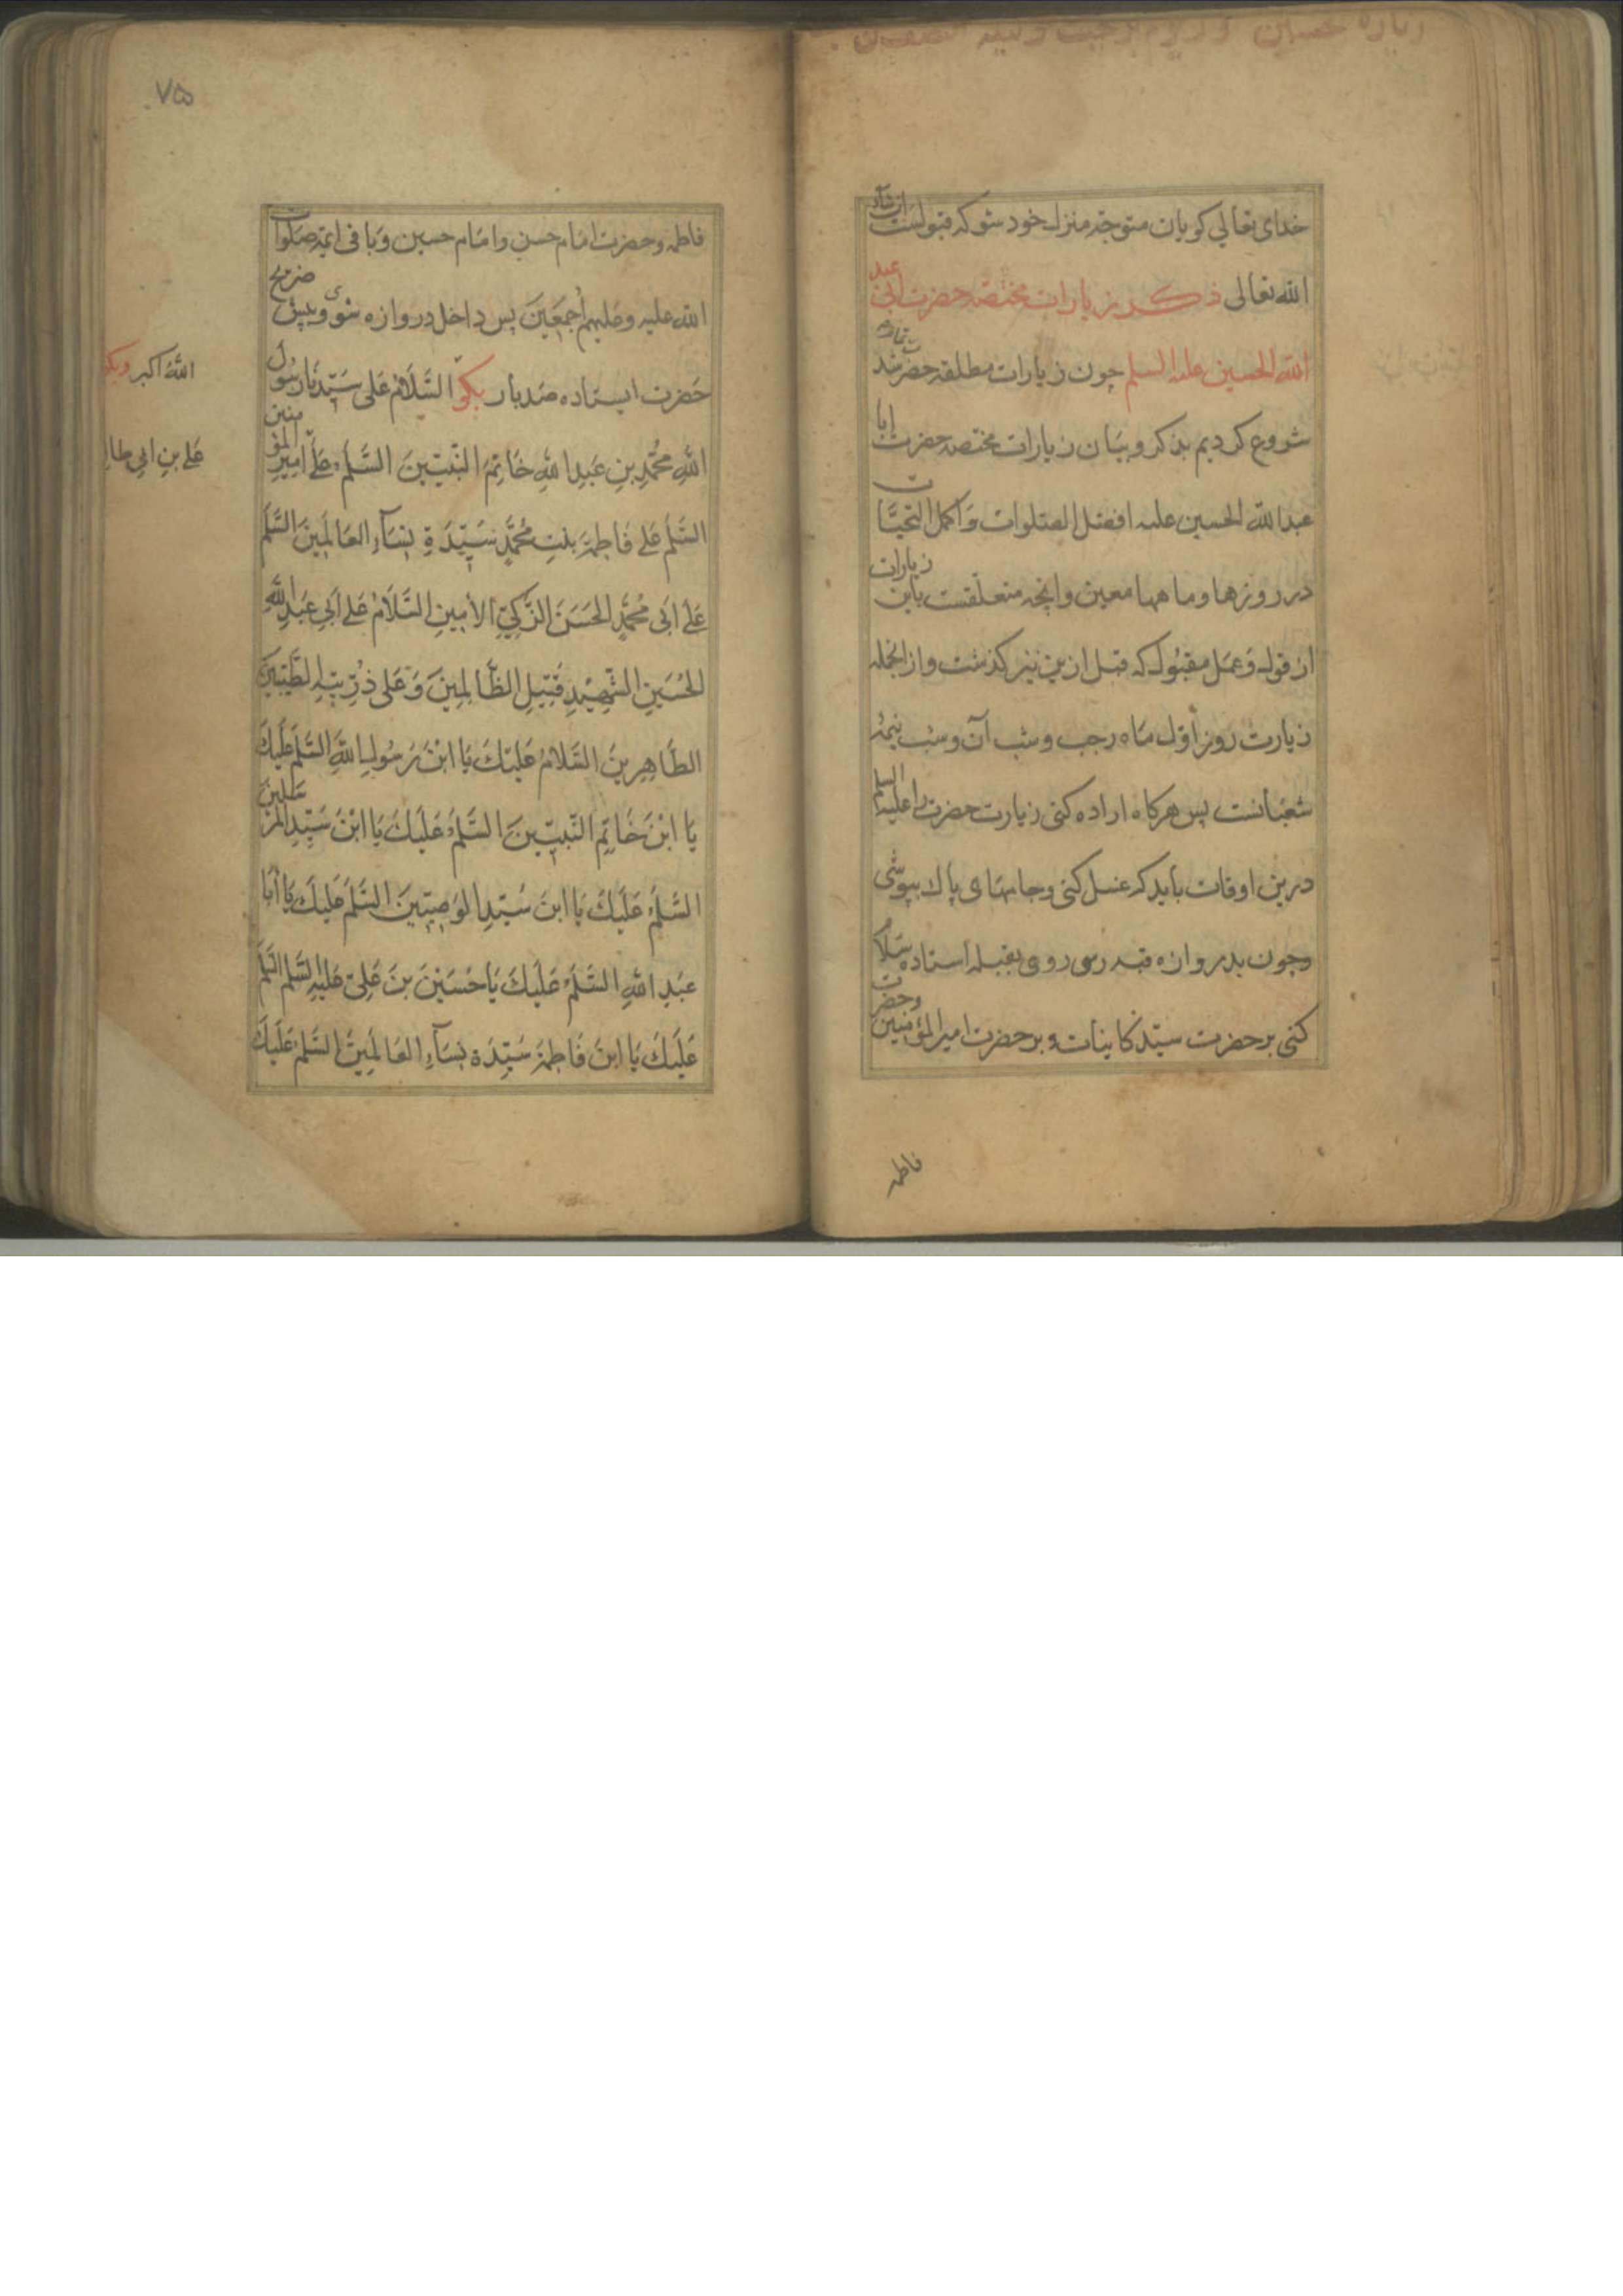 زیارة حسین در روز رجب و لیلة النصف من
خدای تعالی کویان متوجه منزل خود شو که قبولست ان شآء
الله تعالی ذکر زیارات مختصه حضرت ابی عبد
الله الحسین علیه السلم چون زیارات مطلقه حضرت تمام شد
شروع کردیم بذکر و بیان زیارات مختصه حضرت ابا
عبدالله الحسین علیه افضل الصلوات و اکمل التحیات
در روزها و ماهها معین و انچه متعلقست باین زیارات
از قول و عمل مقبول که قبل ازین نیز کذشت و از انجمله
زیارت روز اول ماه رجب و شب آن و شب نیمهٔ
شعبانست پس هرکاه اراده کنی زیارت حضرت را علیه السلم
درین اوقات باید که غسل کنی و جامهای پاک بپوشی
و چون بدروازه قبه رسی روی بقبله استاده سلام
کنی بر حضرت سید کاینات و بر حضرت امیرالمؤمنین و حضرت
فاطمه
۷۵
فاطمه و حضرت امام حسن و امام حسین و باقی ایمه صلوات
الله علیه و علیهم اجمعین پس داخل دروازه شوی و پیش ضریح
حضرت ایستاده صد بار بکو السَّلَامُ عَلی سَیِّدِنا رَسُولِ
الله اکبر و بکو
اللهِ مُحَمَّدِ بنِ عَبدِ اللهِ خَاتِمِ النَّبِیِّینَ السَّلَمُ عَلَی اَمِیرِ المُؤمنین
عَلی بنِ ابی طالب
السَّلَمُ عَلی فَاطِمَةَ بِنتِ مُحَمَّدٍ سَیِّدَةِ نِسَآءِ العَالَمِینَ السَّلَمُ
عَلی اَبی مُحَمَّدٍ الحَسَنِ الزَّکِیِّ الاَمِینِ السَّلَامُ عَلی اَبی عَبدِ اللهِ
الحُسَینِ الشَّهِیدِ قَتِیلِ الظَّالِمِینَ وَ عَلی ذُرِّیَّتِهِ الطَّیِّبِینَ
الطَّاهِرِینَ السَّلَامُ عَلَیکَ یَا ابْنَ رَسُولِ اللهِ السَّلَمُ عَلَیکَ
یَا ابْنَ خَاتِمِ النَّبِیِّینَ السَّلَمُ عَلَیکَ یَا ابْنَ سَیِّدِ المُرسَلینَ
السَّلَمُ عَلَیکَ یَا ابنَ سَیِّدِ الوَصِیِّینَ السَّلَمُ عَلَیکَ یَا اَبَا
عَبدِ اللهِ السَّلَمُ عَلَیکَ یَا حُسَیْنَ بنَ عَلِیّ عَلَیهِ السَّلَم السَّلَمُ
عَلَیکَ یَا ابنَ فَاطِمَةَ سَیِّدَةِ نِسَآءِ العَالَمِینَ السَّلَمُ عَلَیکَ